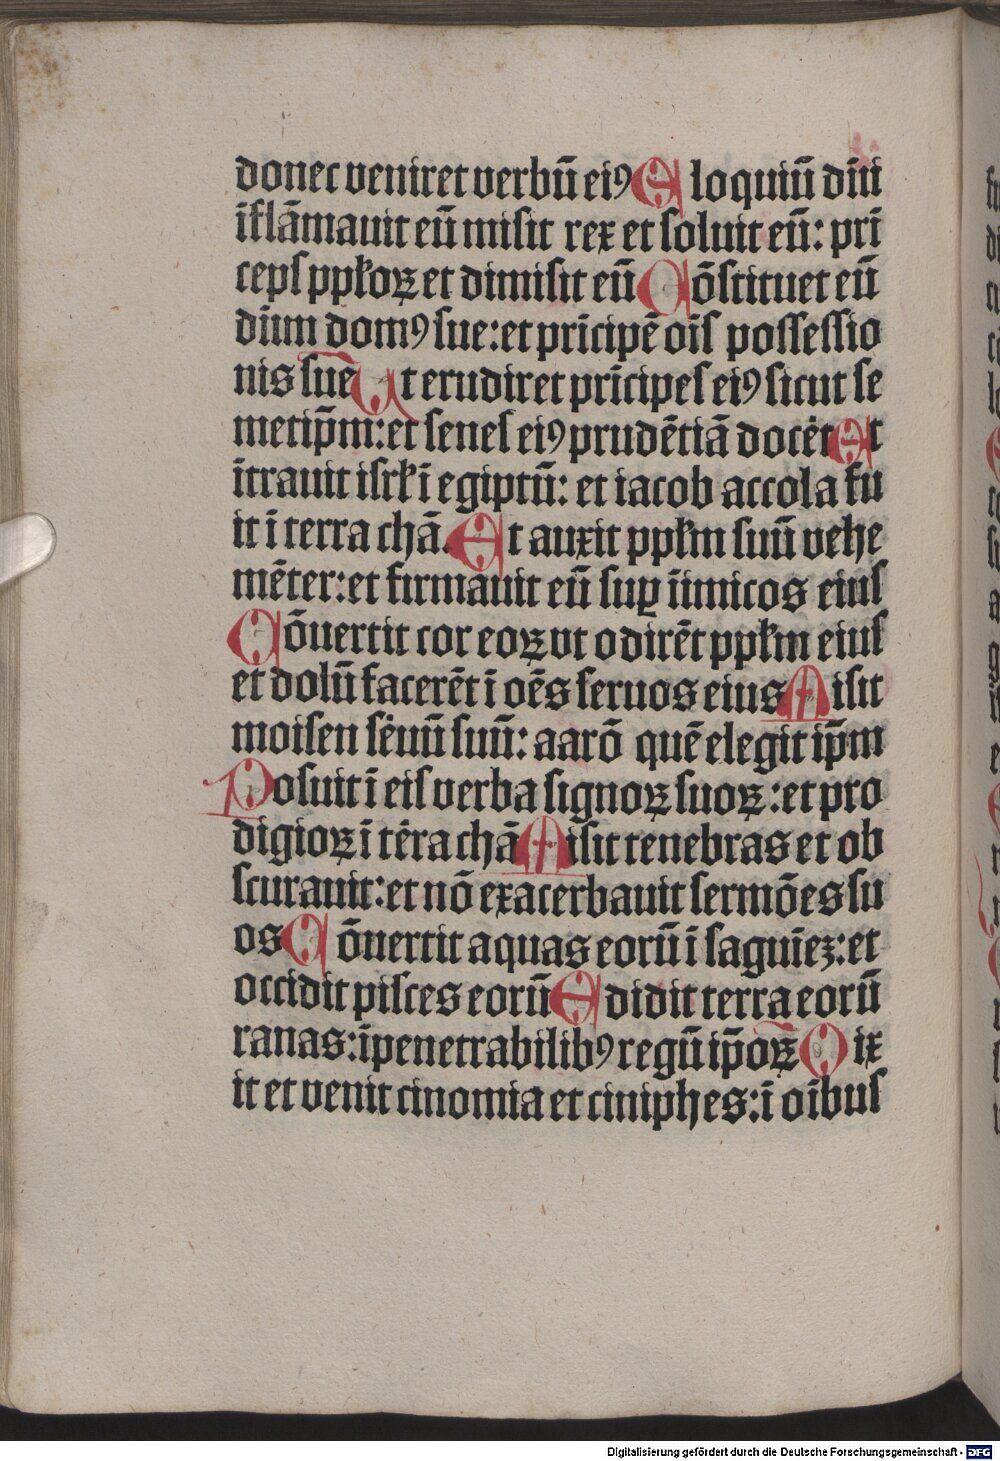 donec veniret verbū eiꝰ Eloquiū dn̄i
īflāmauit eū misit rex et soluit eū: prī
ceps ppl̄oꝝ et dimisit eū Cōstituet eū
dn̄m domꝰ sue: et prīcipē oīs possessio
nis sue Ut erudiret prīcipes eiꝰ sicut se
metip̄m: et senes eiꝰ prudētiā docēt Et
ītrauit isrl̄ ī egiptū: et iacob accola fu
it ī terra chā. Et auxit ppl̄m suū vehe
mēter: et firmauit eū suꝑ īimicos eius
Cōuertit cor eoꝝ vt odirēt ppl̄m eius
et dolū facerēt ī oēs seruos eius Misit
moisen sēuū suū: aarō quē elegit ip̄m
Posuit ī eis verba signoꝝ suoꝝ: et pro
digioꝝ ī tēra chā Misit tenebras et ob
scurauit: et nō exacerbauit sermōes su
os Cōuertit aquas eorū ī saguīez: et
occidit pisces eorū Edidit terra eorū
ranas: īpenetrabilibꝰ regū ip̄oꝝ Dix
it et venit cinomia et ciniphes: ī oībus
Digitalisierung gefördert durch die Deutsche Forschungsgemeinschaft - DFG